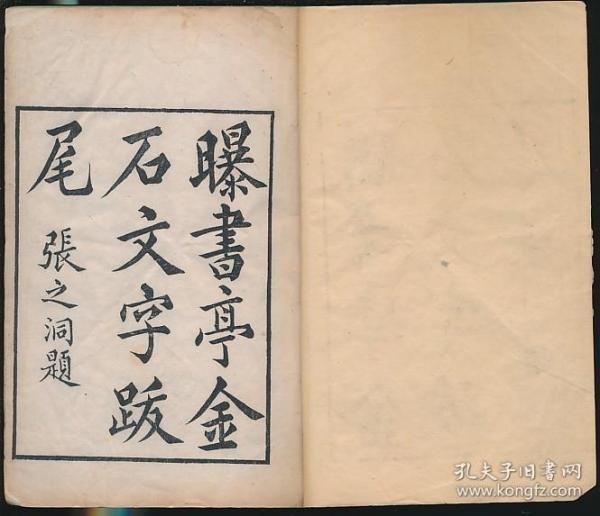 曝書亭金
石文字跋
尾
張之洞題
孔夫子旧書网
www.kongfz.com